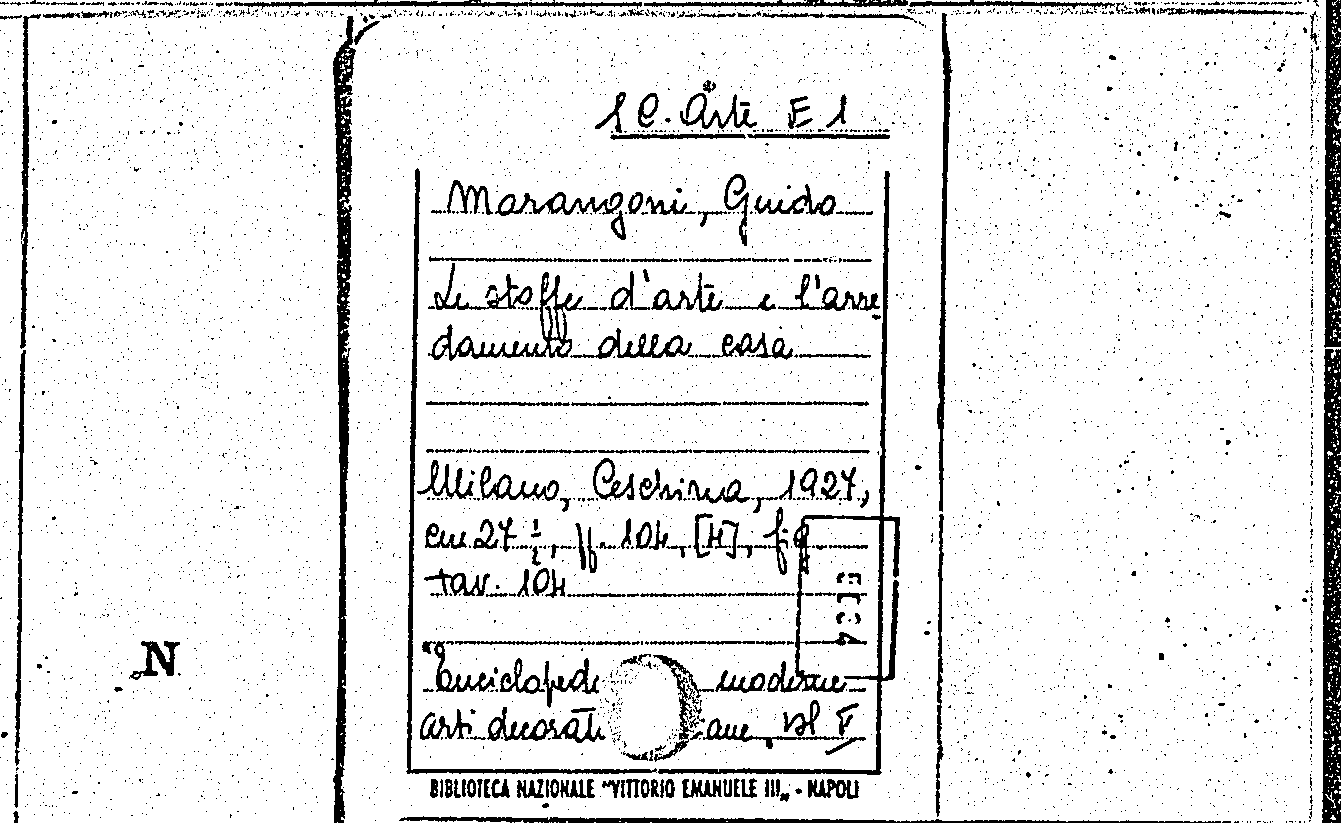 S C. Arte E 1
Marangoni, Guido
Le stoffe d'arte e l'arre
damento della casa
Milano, Ceschina, 1927,
cm 27 ½, pp. 104, [4], fig.
tav. 104
N
"Enciclopedi moderne
arti decorati iane, Vol V
BIBLIOTECA NAZIONALE "VITTORIO EMANUELE III„ - NAPOLI